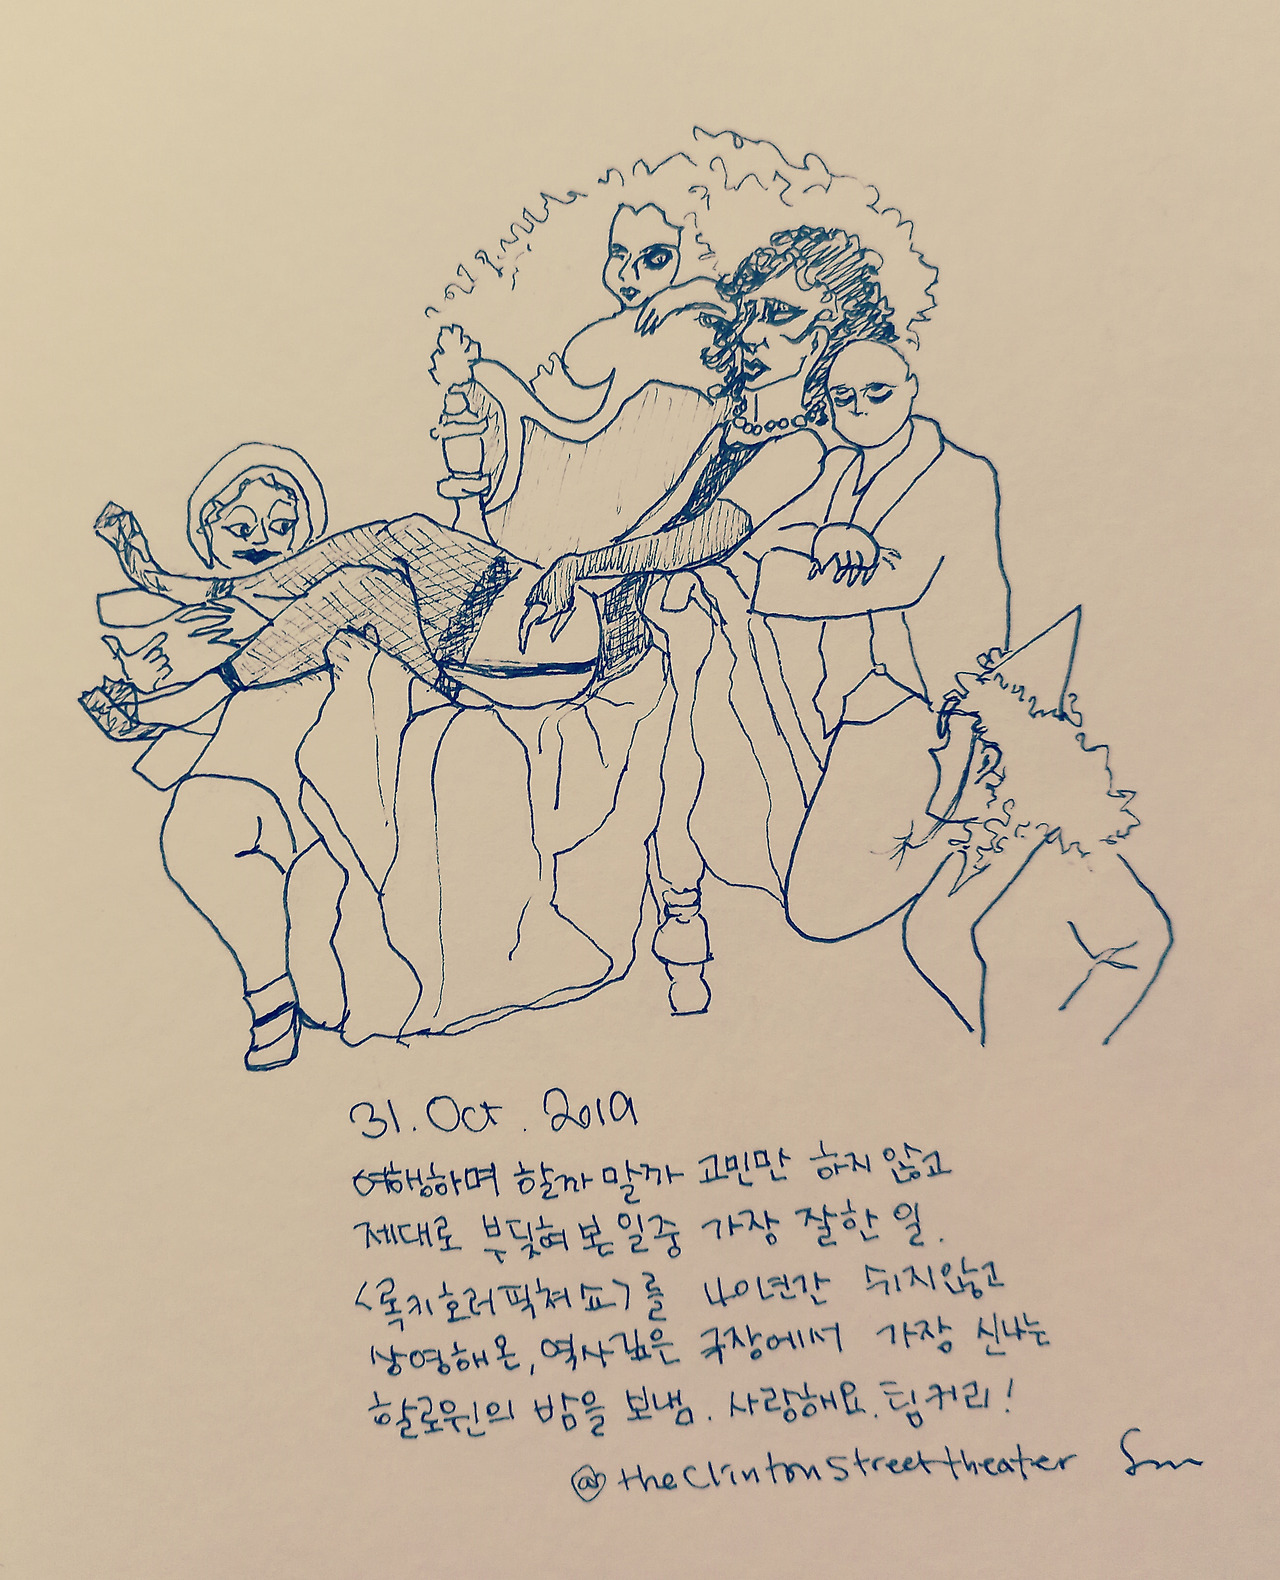 31. Oct. 2019
여행하며 할까말까 고민만 하지 않고
제대로 부딪혀 본 일중 가장 잘한 일.
<록키호러픽쳐쇼>를 40년간 쉬지않고
상영해온, 역사깊은 극장에서 가장 신나는
할로윈의 밤을 보냄. 사랑해요. 팀커리!
@theclintonstreettheater